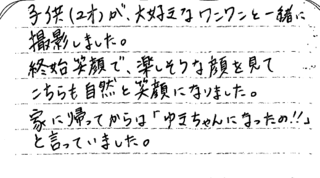 子供(2才)が、大好きなワンワンと一緒に
撮影しました。
終始笑顔で、楽しそうな顔を見て
こちらも自然と笑顔になりました。
家に帰ってからは「ゆきちゃんになったの!!」
と言っていました。